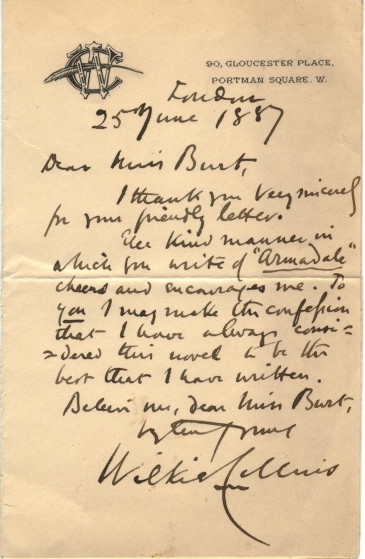 WC
90, GLOUCESTER PLACE,
PORTMAN SQUARE. W.
London
25th June 1887
Dear Miss Burt,
I thank you very sincerely
for your friendly letter.
The kind manner in
which you write of "Armadale"
cheers and encourages me. To
you I may make the confession
that I have always consi=
=dered this novel to be the
best that I have written.
Believe me, dear Miss Burt,
truly yours
Wilkie Collins